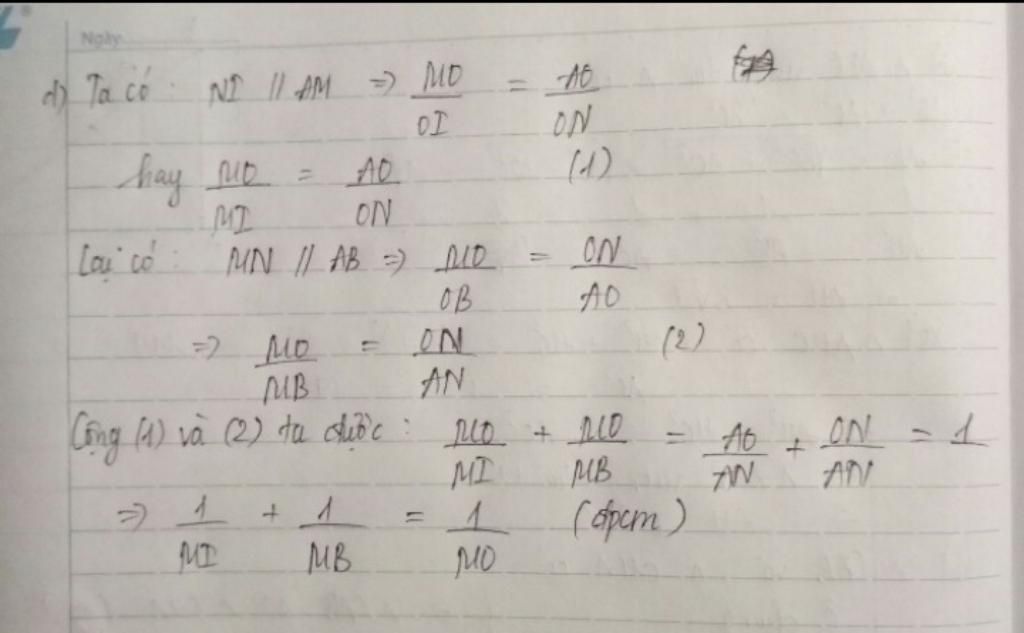 Ngày
d) Ta có: NI // AM => MO/OI = AO/ON
hay MO/MI = AO/ON (1)
Lại có: MN // AB => MO/OB = ON/AO
=> MO/MB = ON/AN (2)
Cộng (1) và (2) ta được: MO/MI + MO/MB = AO/AN + ON/AN = 1
=> 1/MI + 1/MB = 1/MO (đpcm)